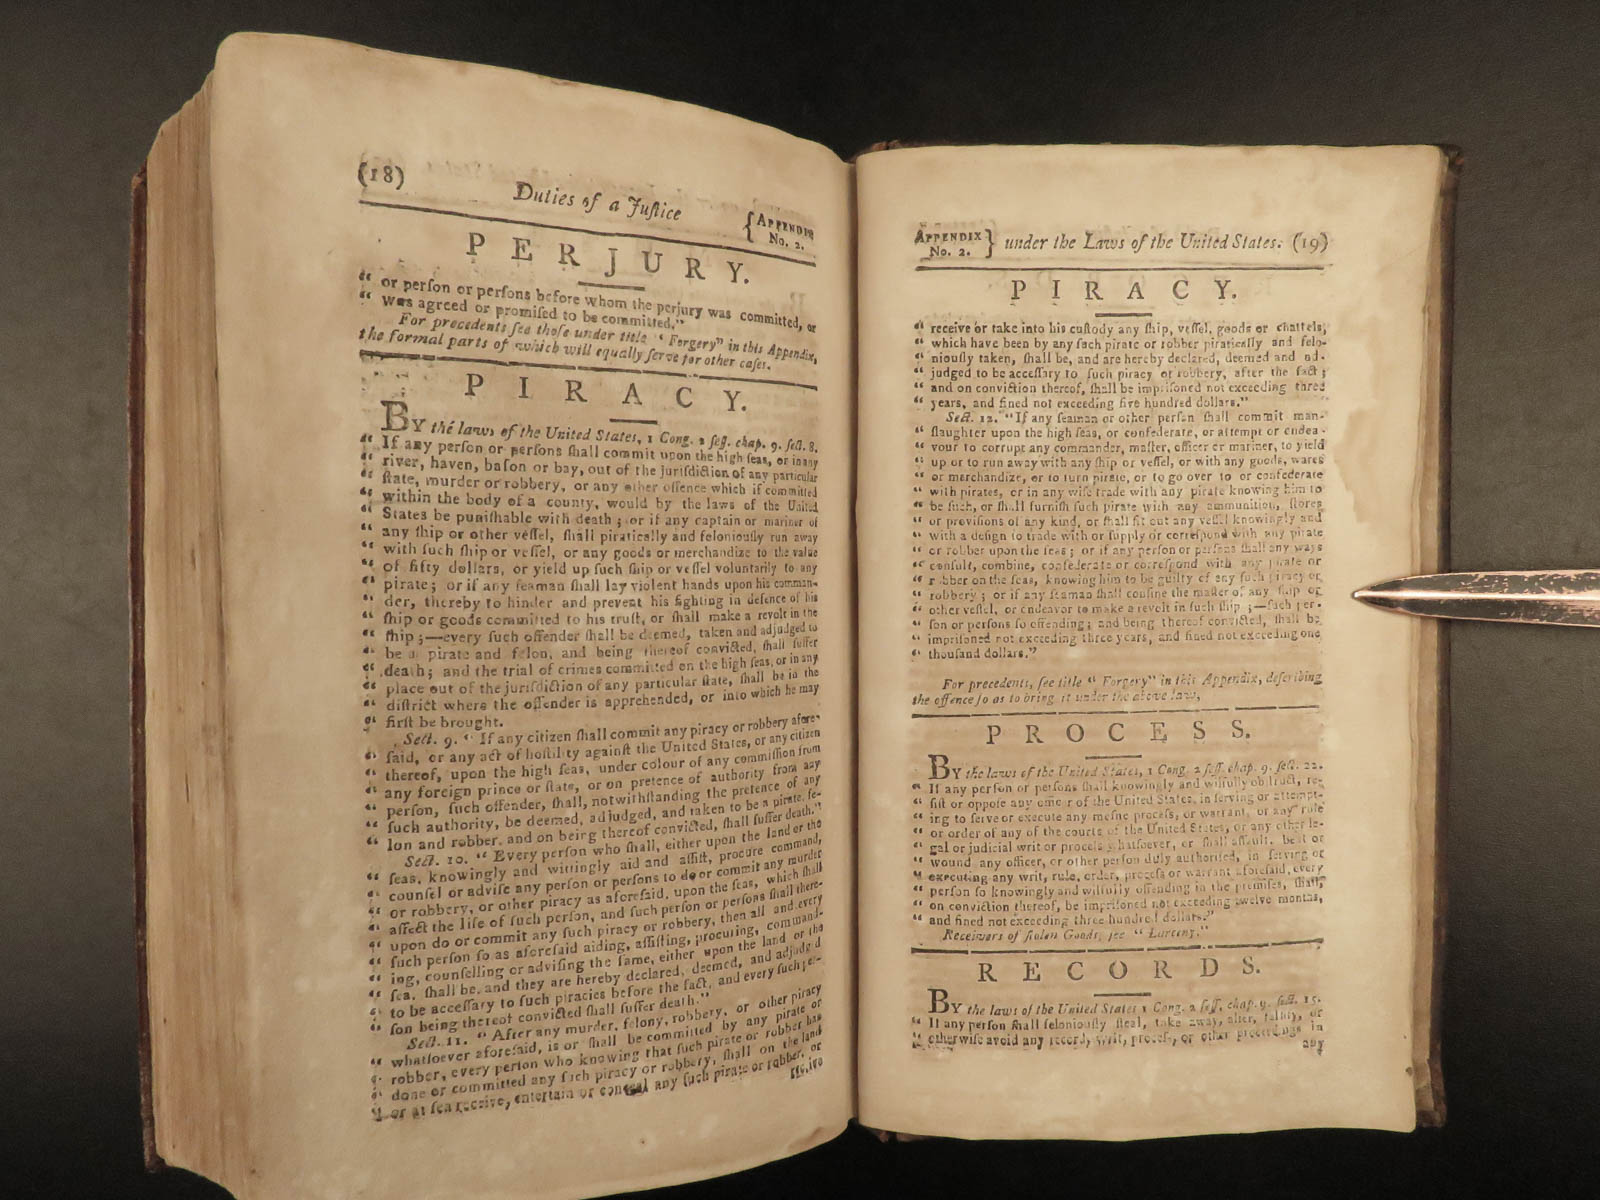 (18)
Duties of a Juſtice
{APPENDIX
No. 2.
PERJURY.
“ or perſon or perſons before whom the perjury was committed, or
“ was agreed or promiſed to be committed,”
For precedents ſee thoſe under title “ Forgery” in this Appendix,
the formal parts of which will equally ſerve for other caſes.
PIRACY.
BY the laws of the United States, 1 Cong. 2 ſeſſ. chap. 9. ſect. 8.
“ If any perſon or perſons ſhall commit upon the high ſeas, or in any
“ river, haven, baſon or bay, out of the juriſdiction of any particular
“ ſtate, murder or robbery, or any other offence which if committed
“ within the body of a county, would by the laws of the United
“ States be puniſhable with death ; or if any captain or mariner of
“ any ſhip or other veſſel, ſhall piratically and feloniouſly run away
“ with ſuch ſhip or veſſel, or any goods or merchandize to the value
“ of fifty dollars, or yield up ſuch ſhip or veſſel voluntarily to any
“ pirate ; or if any ſeaman ſhall lay violent hands upon his comman-
“ der, thereby to hinder and prevent his fighting in defence of his
“ ſhip or goods committed to his truſt, or ſhall make a revolt in the
“ ſhip ;—every ſuch offender ſhall be deemed, taken and adjudged to
“ be a pirate and felon, and being thereof convicted, ſhall ſuffer
“ death; and the trial of crimes committed on the high ſeas, or in any
“ place out of the juriſdiction of any particular ſtate, ſhall be in the
“ diſtrict where the offender is apprehended, or into which he may
“ firſt be brought.
Sect. 9. “ If any citizen ſhall commit any piracy or robbery afore-
“ ſaid, or any act of hoſtility againſt the United States, or any citizen
“ thereof, upon the high ſeas, under colour of any commiſſion from
“ any foreign prince or ſtate, or on pretence of authority from any
“ perſon, ſuch offender, ſhall, notwithſtanding the pretence of any
“ ſuch authority, be deemed, adjudged, and taken to be a pirate, fe-
“ lon and robber, and on being thereof convicted, ſhall ſuffer death.”
Sect. 10. “ Every perſon who ſhall, either upon the land or the
“ ſeas, knowingly and wittingly aid and aſſiſt, procure command,
“ counſel or adviſe any perſon or perſons to do or commit any murder
“ or robbery, or other piracy as aforeſaid, upon the ſeas, which ſhall
“ affect the life of ſuch perſon, and ſuch perſon or perſons ſhall there-
“ upon do or commit any ſuch piracy or robbery, then all and every
“ ſuch perſon ſo as aforeſaid aiding, aſſiſting, procuring, command-
“ ing, counſelling or adviſing the ſame, either upon the land or the
“ ſea, ſhall be, and they are hereby declared, deemed, and adjudged
“ to be acceſſary to ſuch piracies before the fact, and every ſuch per-
“ ſon being thereof convicted ſhall ſuffer death.”
Sect. 11. “ After any murder, felony, robbery, or other piracy
“ whatſoever aforeſaid, is or ſhall be committed by any pirate or
“ robber, every perſon who knowing that ſuch pirate or robber has
“ done or committed any ſuch piracy or robbery, ſhall on the land
“ or at ſea receive, entertain or conceal any ſuch pirate or robber, or
receive
APPENDIX
No. 2. }
under the Laws of the United States. (19)
PIRACY.
“ receive or take into his cuſtody any ſhip, veſſel, goods or chattels,
“ which have been by any ſuch pirate or robber piratically and felo-
“ niouſly taken, ſhall be, and are hereby declared, deemed and ad-
“ judged to be acceſſary to ſuch piracy or robbery, after the fact ;
“ and on conviction thereof, ſhall be impriſoned not exceeding three
“ years, and fined not exceeding five hundred dollars.”
Sect. 12. “ If any ſeaman or other perſon ſhall commit man-
“ ſlaughter upon the high ſeas, or confederate, or attempt or endea-
“ vour to corrupt any commander, maſter, officer or mariner, to yield
“ up or to run away with any ſhip or veſſel, or with any goods, wares
“ or merchandize, or to turn pirate, or to go over to or confederate
“ with pirates, or in any wiſe trade with any pirate knowing him to
“ be ſuch, or ſhall furniſh ſuch pirate with any ammunition, ſtores
“ or proviſions of any kind, or ſhall fit out any veſſel knowingly and
“ with a deſign to trade with or ſupply or correſpond with any pirate
“ or robber upon the ſeas ; or if any perſon or perſons ſhall any ways
“ conſult, combine, confederate or correſpond with any pirate or
“ robber on the ſeas, knowing him to be guilty of any ſuch piracy or
“ robbery ; or if any ſeaman ſhall confine the maſter of any ſhip or
“ other veſſel, or endeavor to make a revolt in ſuch ſhip ;—ſuch per-
“ ſon or perſons ſo offending ; and being thereof convicted, ſhall be
“ impriſoned not exceeding three years, and fined not exceeding one
“ thouſand dollars.”
For precedents, ſee title “ Forgery” in this Appendix, deſcribing
the offence ſo as to bring it under the above law,
PROCESS.
BY the laws of the United States, 1 Cong. 2 ſeſſ. chap. 9. ſect. 22.
“ If any perſon or perſons ſhall knowingly and wilfully obſtruct, re-
“ ſiſt or oppoſe any officer of the United States, in ſerving or attempt-
“ ing to ſerve or execute any meſne proceſs, or warrant, or any rule
“ or order of any of the courts of the United States, or any other le-
“ gal or judicial writ or proceſs whatſoever, or ſhall aſſault, beat or
“ wound any officer, or other perſon duly authoriſed, in ſerving or
“ executing any writ, rule, order, proceſs or warrant aforeſaid, every
“ perſon ſo knowingly and wilfully offending in the premiſes, ſhall,
“ on conviction thereof, be impriſoned not exceeding twelve months,
“ and fined not exceeding three hundred dollars.”
Receivers of ſtolen Goods, ſee “ Larceny.”
RECORDS.
BY the laws of the United States 1 Cong. 2 ſeſſ. chap. 9. ſect. 15.
“ If any perſon ſhall feloniouſly ſteal, take away, alter, falſify, or
“ otherwiſe avoid any record, writ, proceſs, or other proceedings in
any